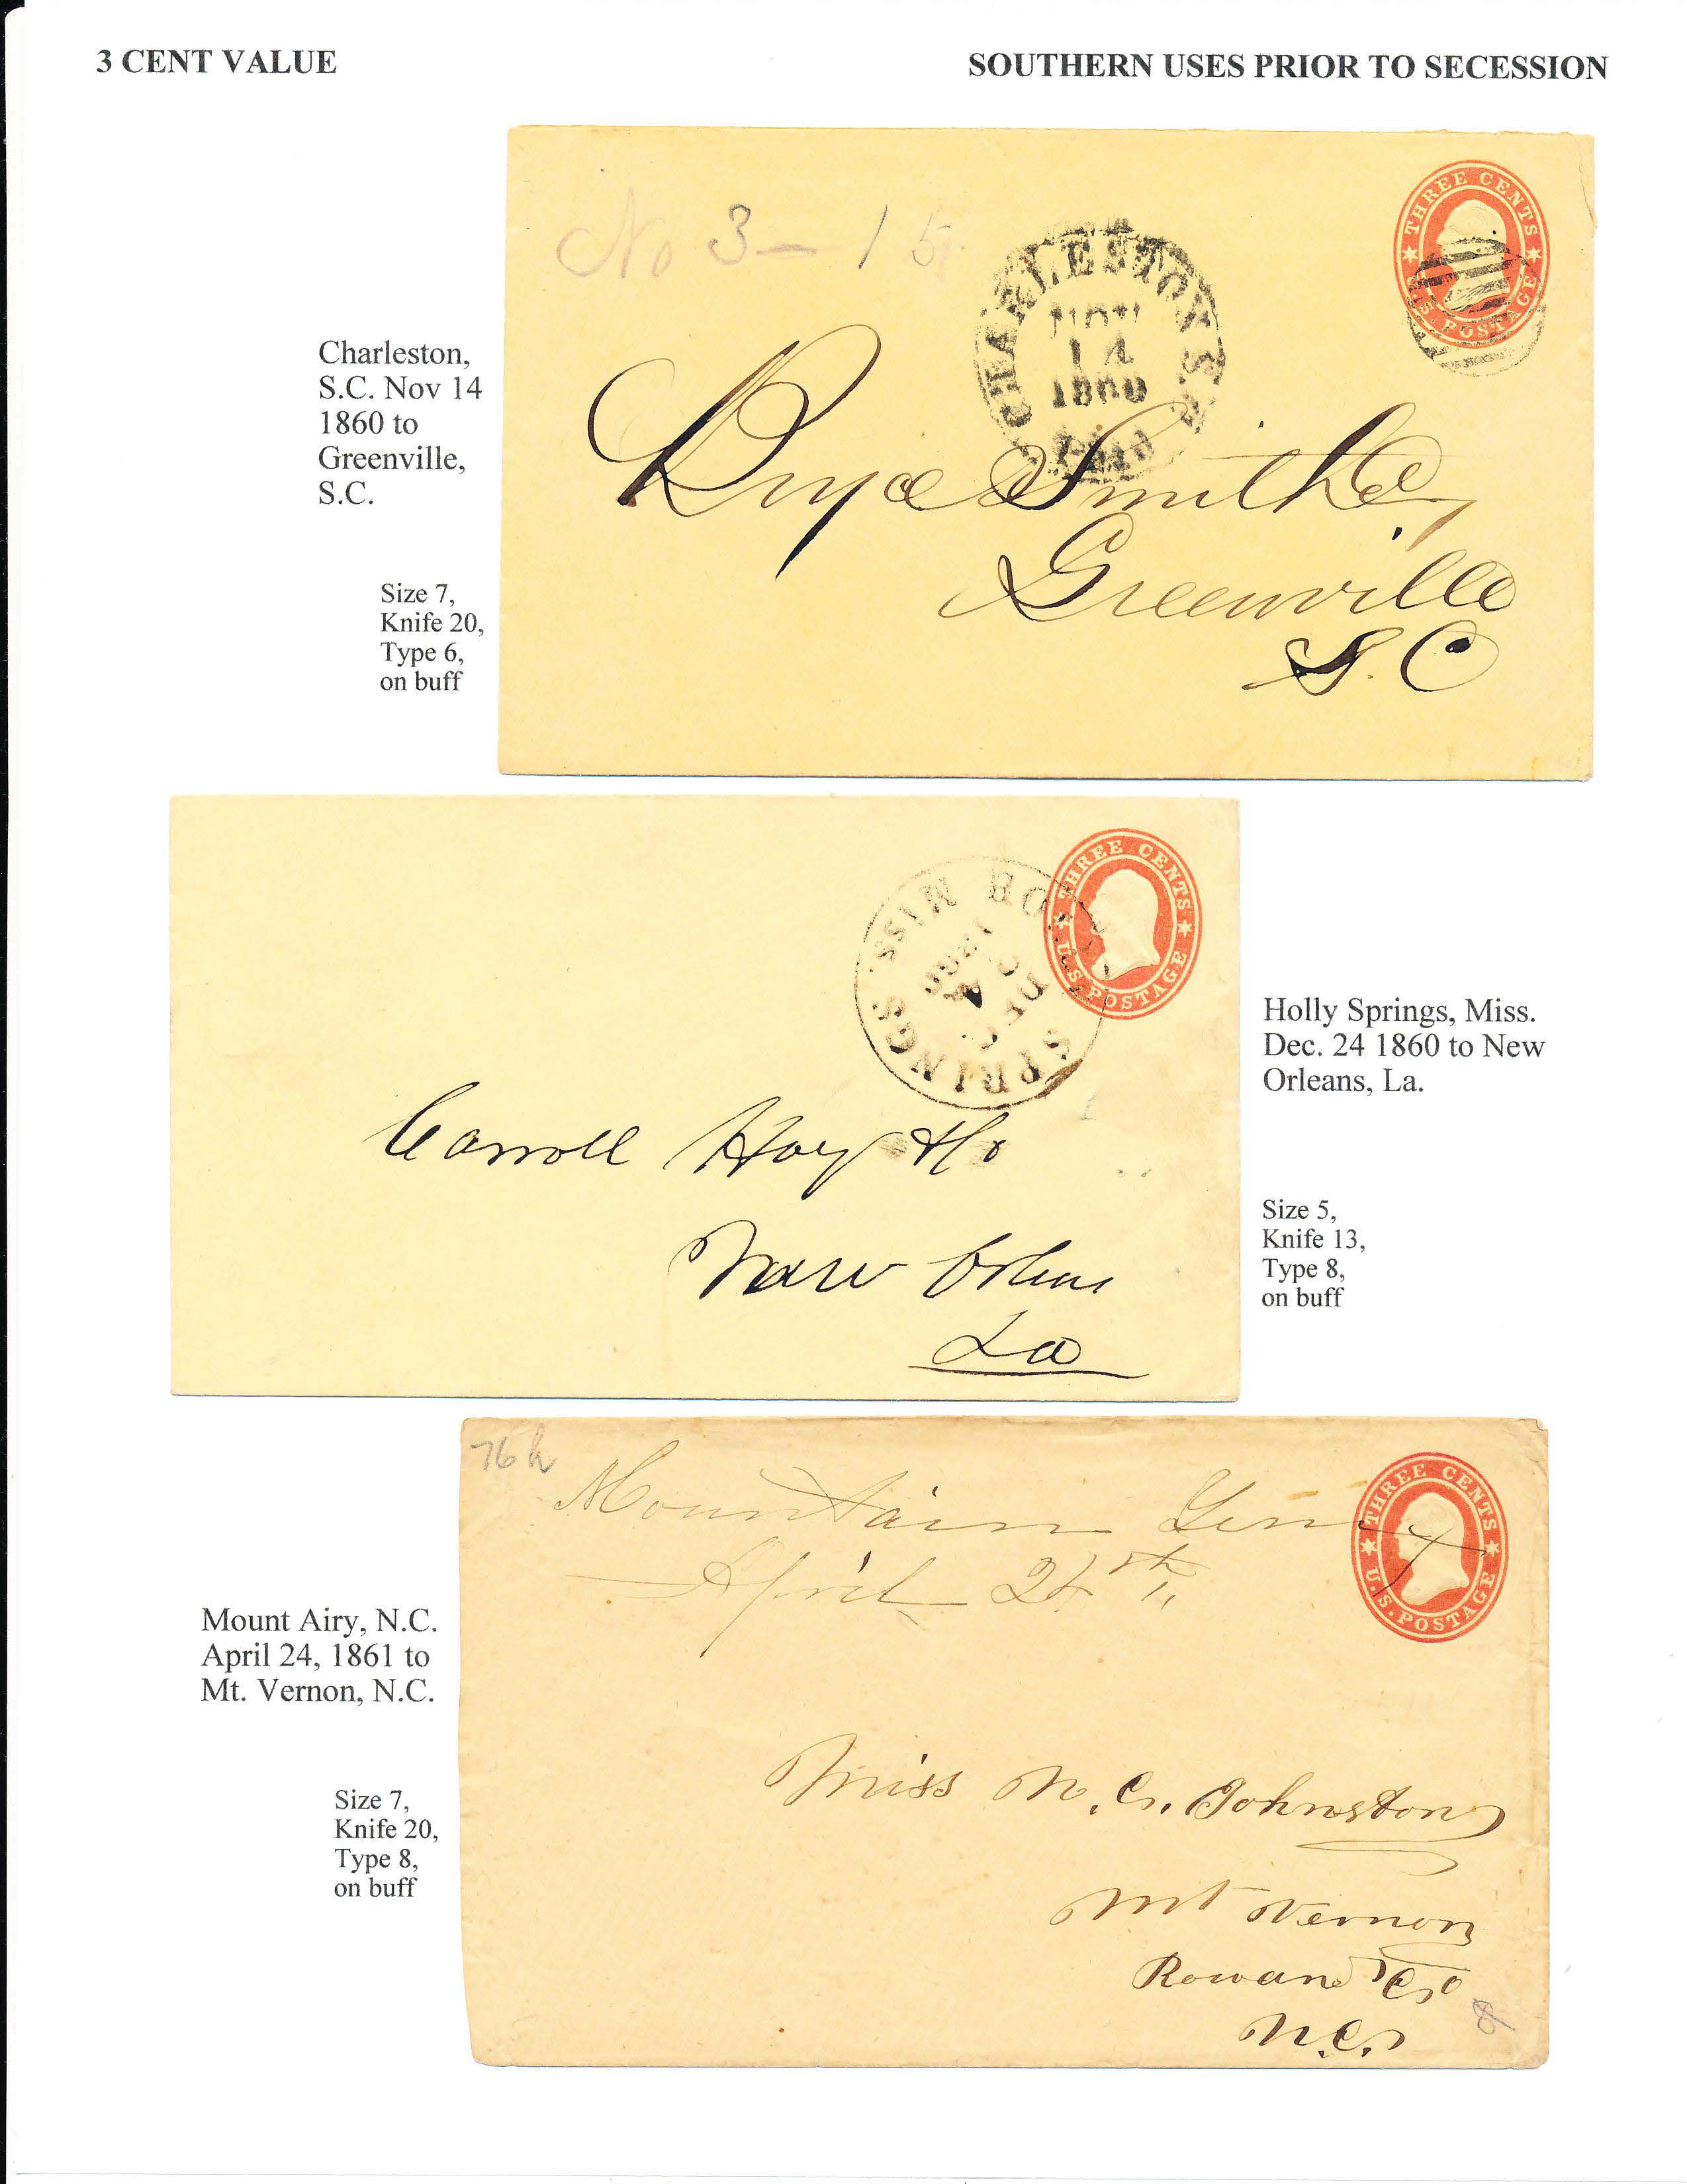 3 CENT VALUE
SOUTHERN USES PRIOR TO SECESSION
No 3 - 15
THREE CENTS
U.S. POSTAGE
CHARLESTON S.C.
NOV
14
1860
PAID
Charleston,
S.C. Nov 14
1860 to
Greenville,
S.C.
Smith
Greenville
S.C
Size 7,
Knife 20,
Type 6,
on buff
THREE CENTS
U.S. POSTAGE
HOLLY SPRINGS MISS.
DEC
24
1860
Carroll Hoy & Co
New Orleans
La
Holly Springs, Miss.
Dec. 24 1860 to New
Orleans, La.
Size 5,
Knife 13,
Type 8,
on buff
76h
Mountain
April 24th
THREE CENTS
U.S. POSTAGE
Mount Airy, N.C.
April 24, 1861 to
Mt. Vernon, N.C.
Miss N. C. Johnston
Mt Vernon
Rowan Co
N.C.
Size 7,
Knife 20,
Type 8,
on buff